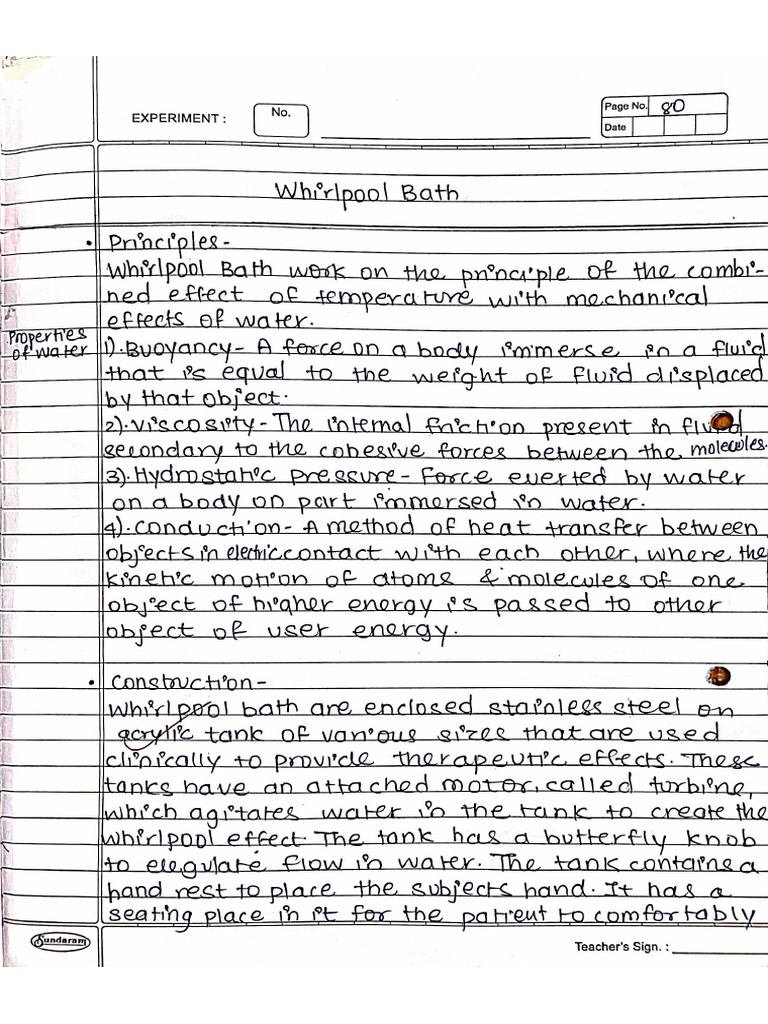 EXPERIMENT :
No.
Page No. 80
Date
Whirlpool Bath
• Principles-
Whirlpool Bath work on the principle of the combi-
ned effect of temperature with mechanical
effects of water.
Properties
of water
1). Buoyancy- A force on a body immerse in a fluid
that is equal to the weight of fluid displaced
by that object.
2). Viscosity- The internal friction present in fluid
secondary to the cohesive forces between the molecules.
3). Hydrostatic pressure- Force exerted by water
on a body on part immersed in water.
4). Conduction- A method of heat transfer between
objects in electric contact with each other, where the
kinetic motion of atoms & molecules of one
object of higher energy is passed to other
object of user energy.
• Construction-
Whirlpool bath are enclosed stainless steel on
acrylic tank of various sizes that are used
clinically to provide therapeutic effects. These
tanks have an attached motor, called turbine,
which agitates water in the tank to create the
whirlpool effect. The tank has a butterfly knob
to elegulate flow in water. The tank contains a
hand rest to place the subjects hand. It has a
seating place in it for the patient to comfortably
Sundaram
Teacher's Sign. :